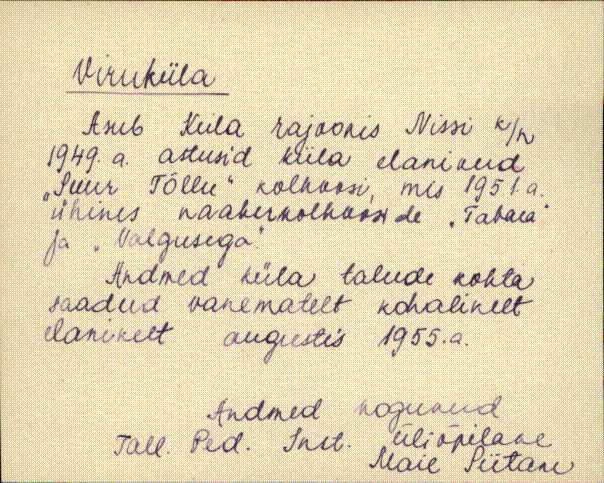 Viruküla
Asub Keila rajoonis Nissi k/n
1949. a. astusid küla elanikud
„Suur Tõllu“ kolhoosi, mis 1951. a.
ühines naaberkolhooside „Tabara“
ja „Valgusega“.
Andmed küla talude kohta
saadud vanematelt kohalikelt
elanikelt augustis 1955. a.
Andmed kogunud
Tall. Ped. Inst. üliõpilane
Maie Siitan